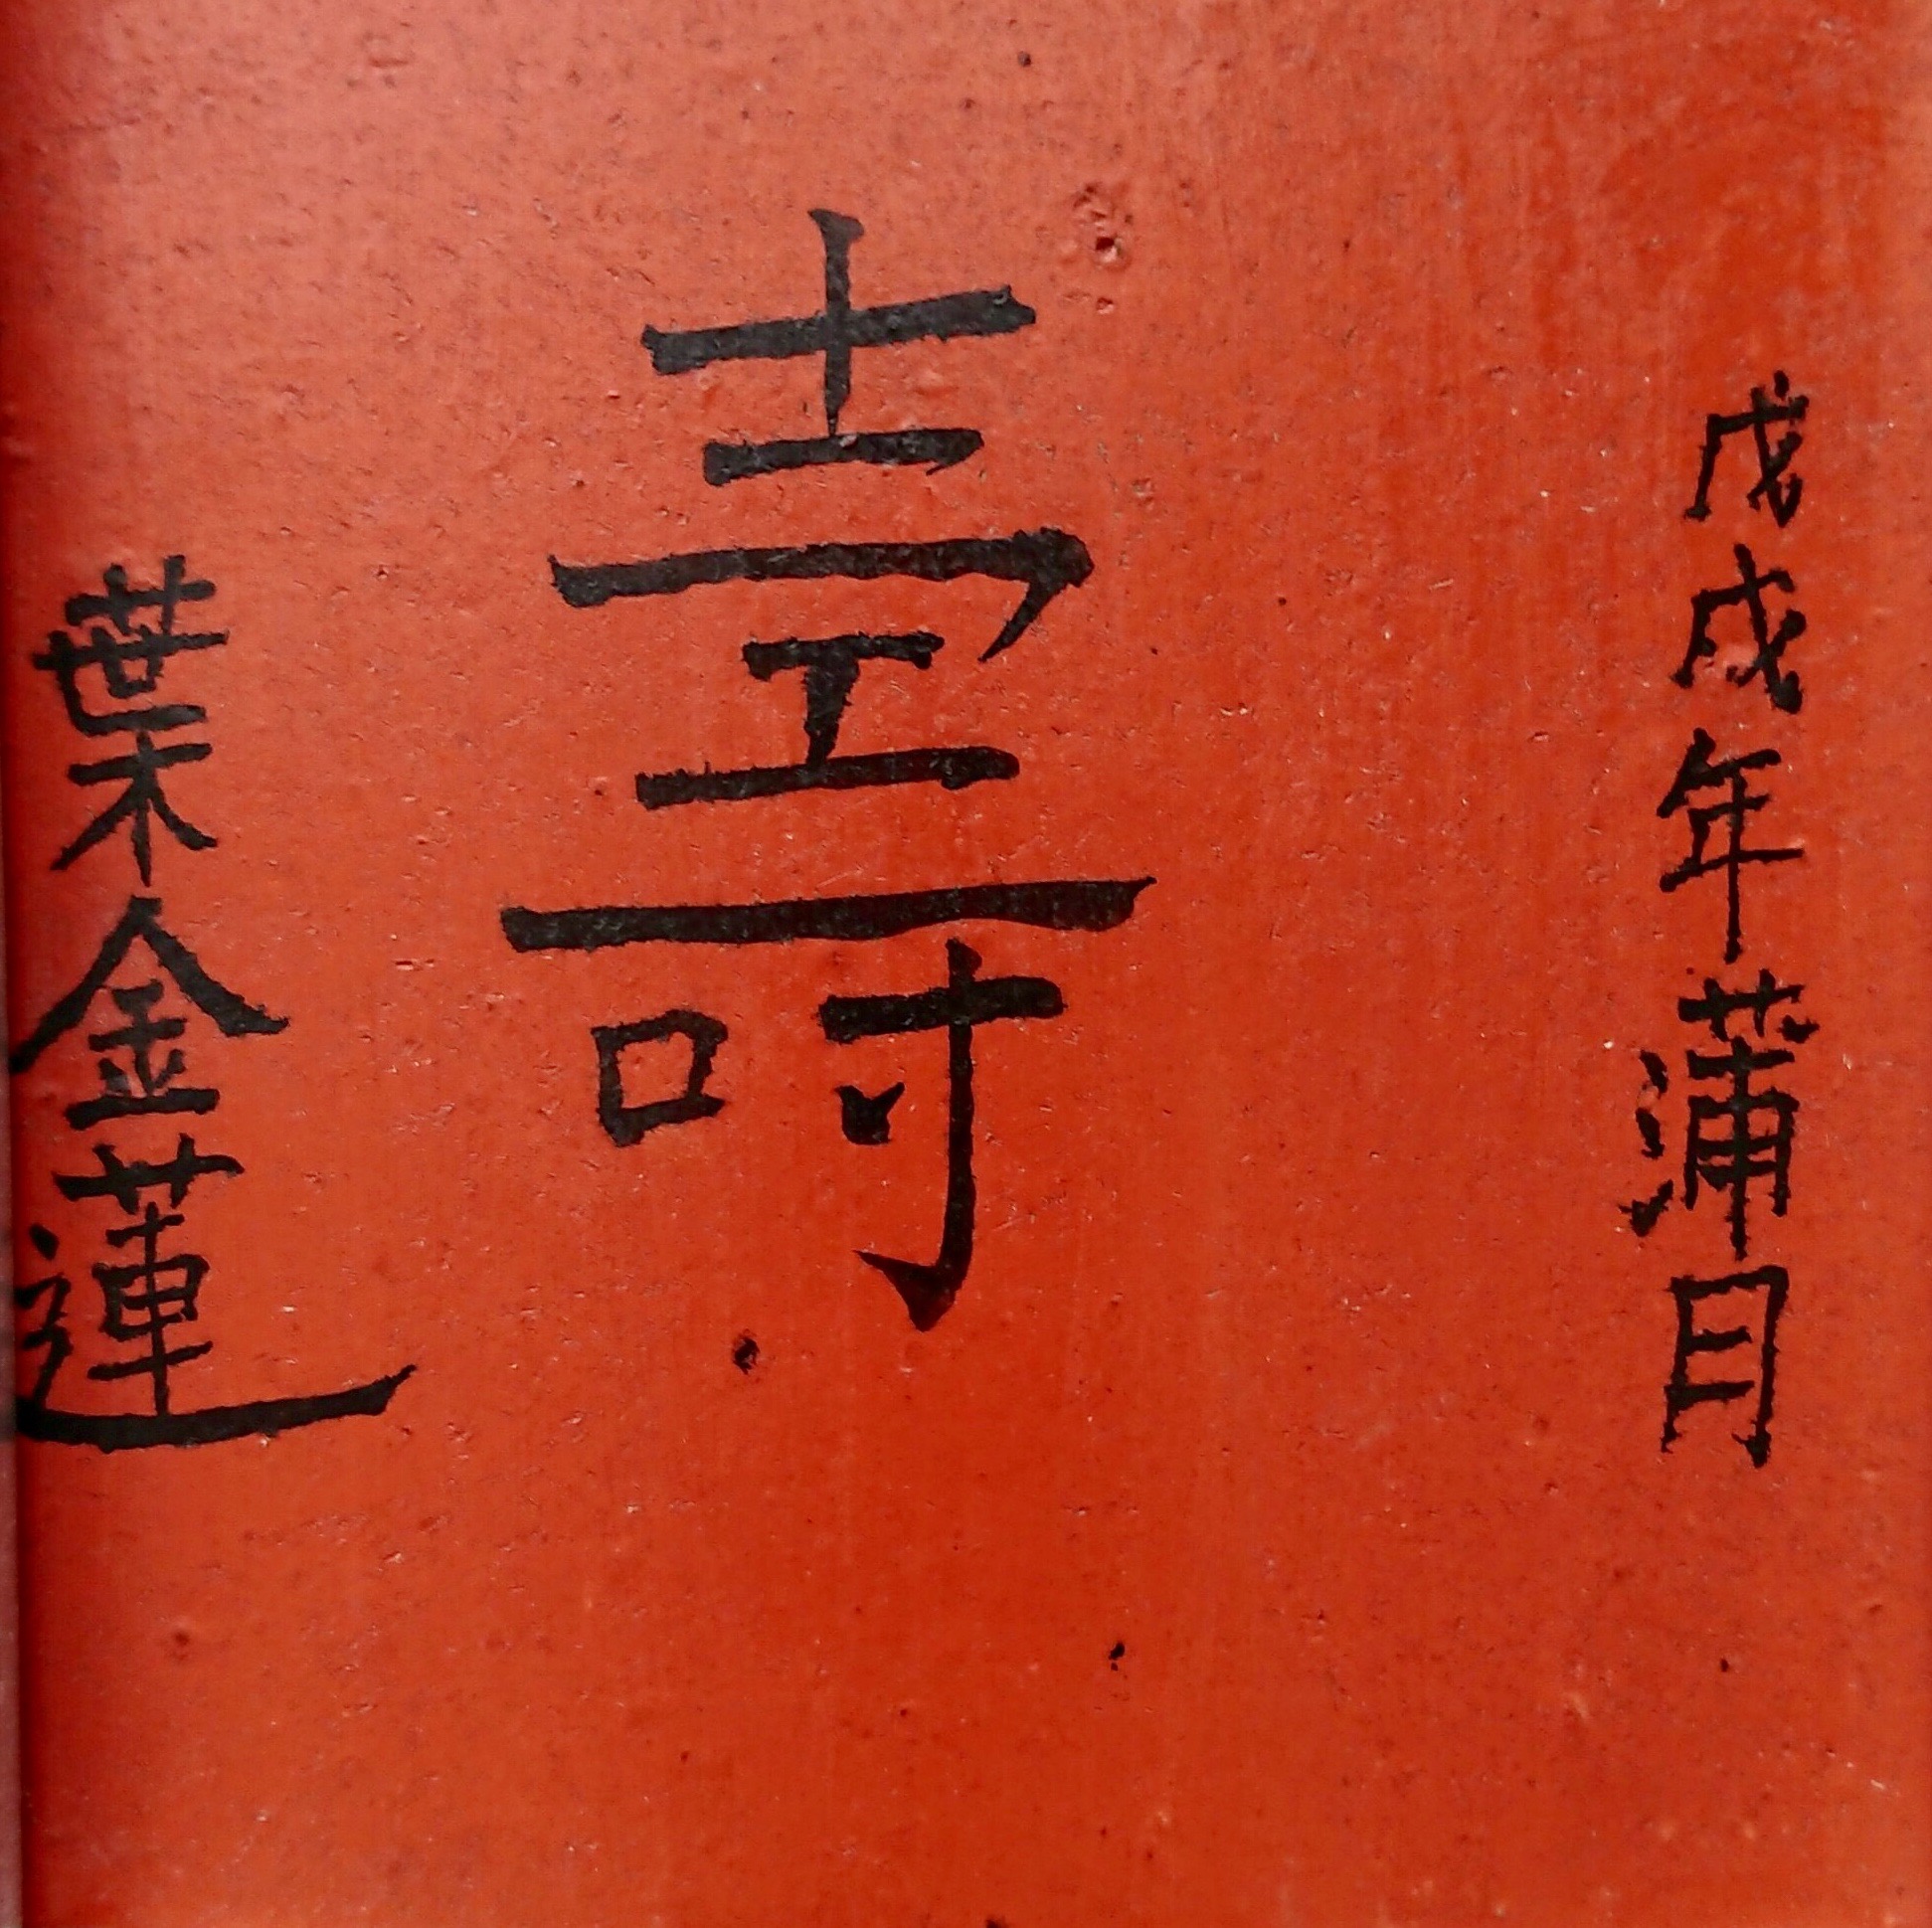 戊戌年蒲月
壽
葉金蓮